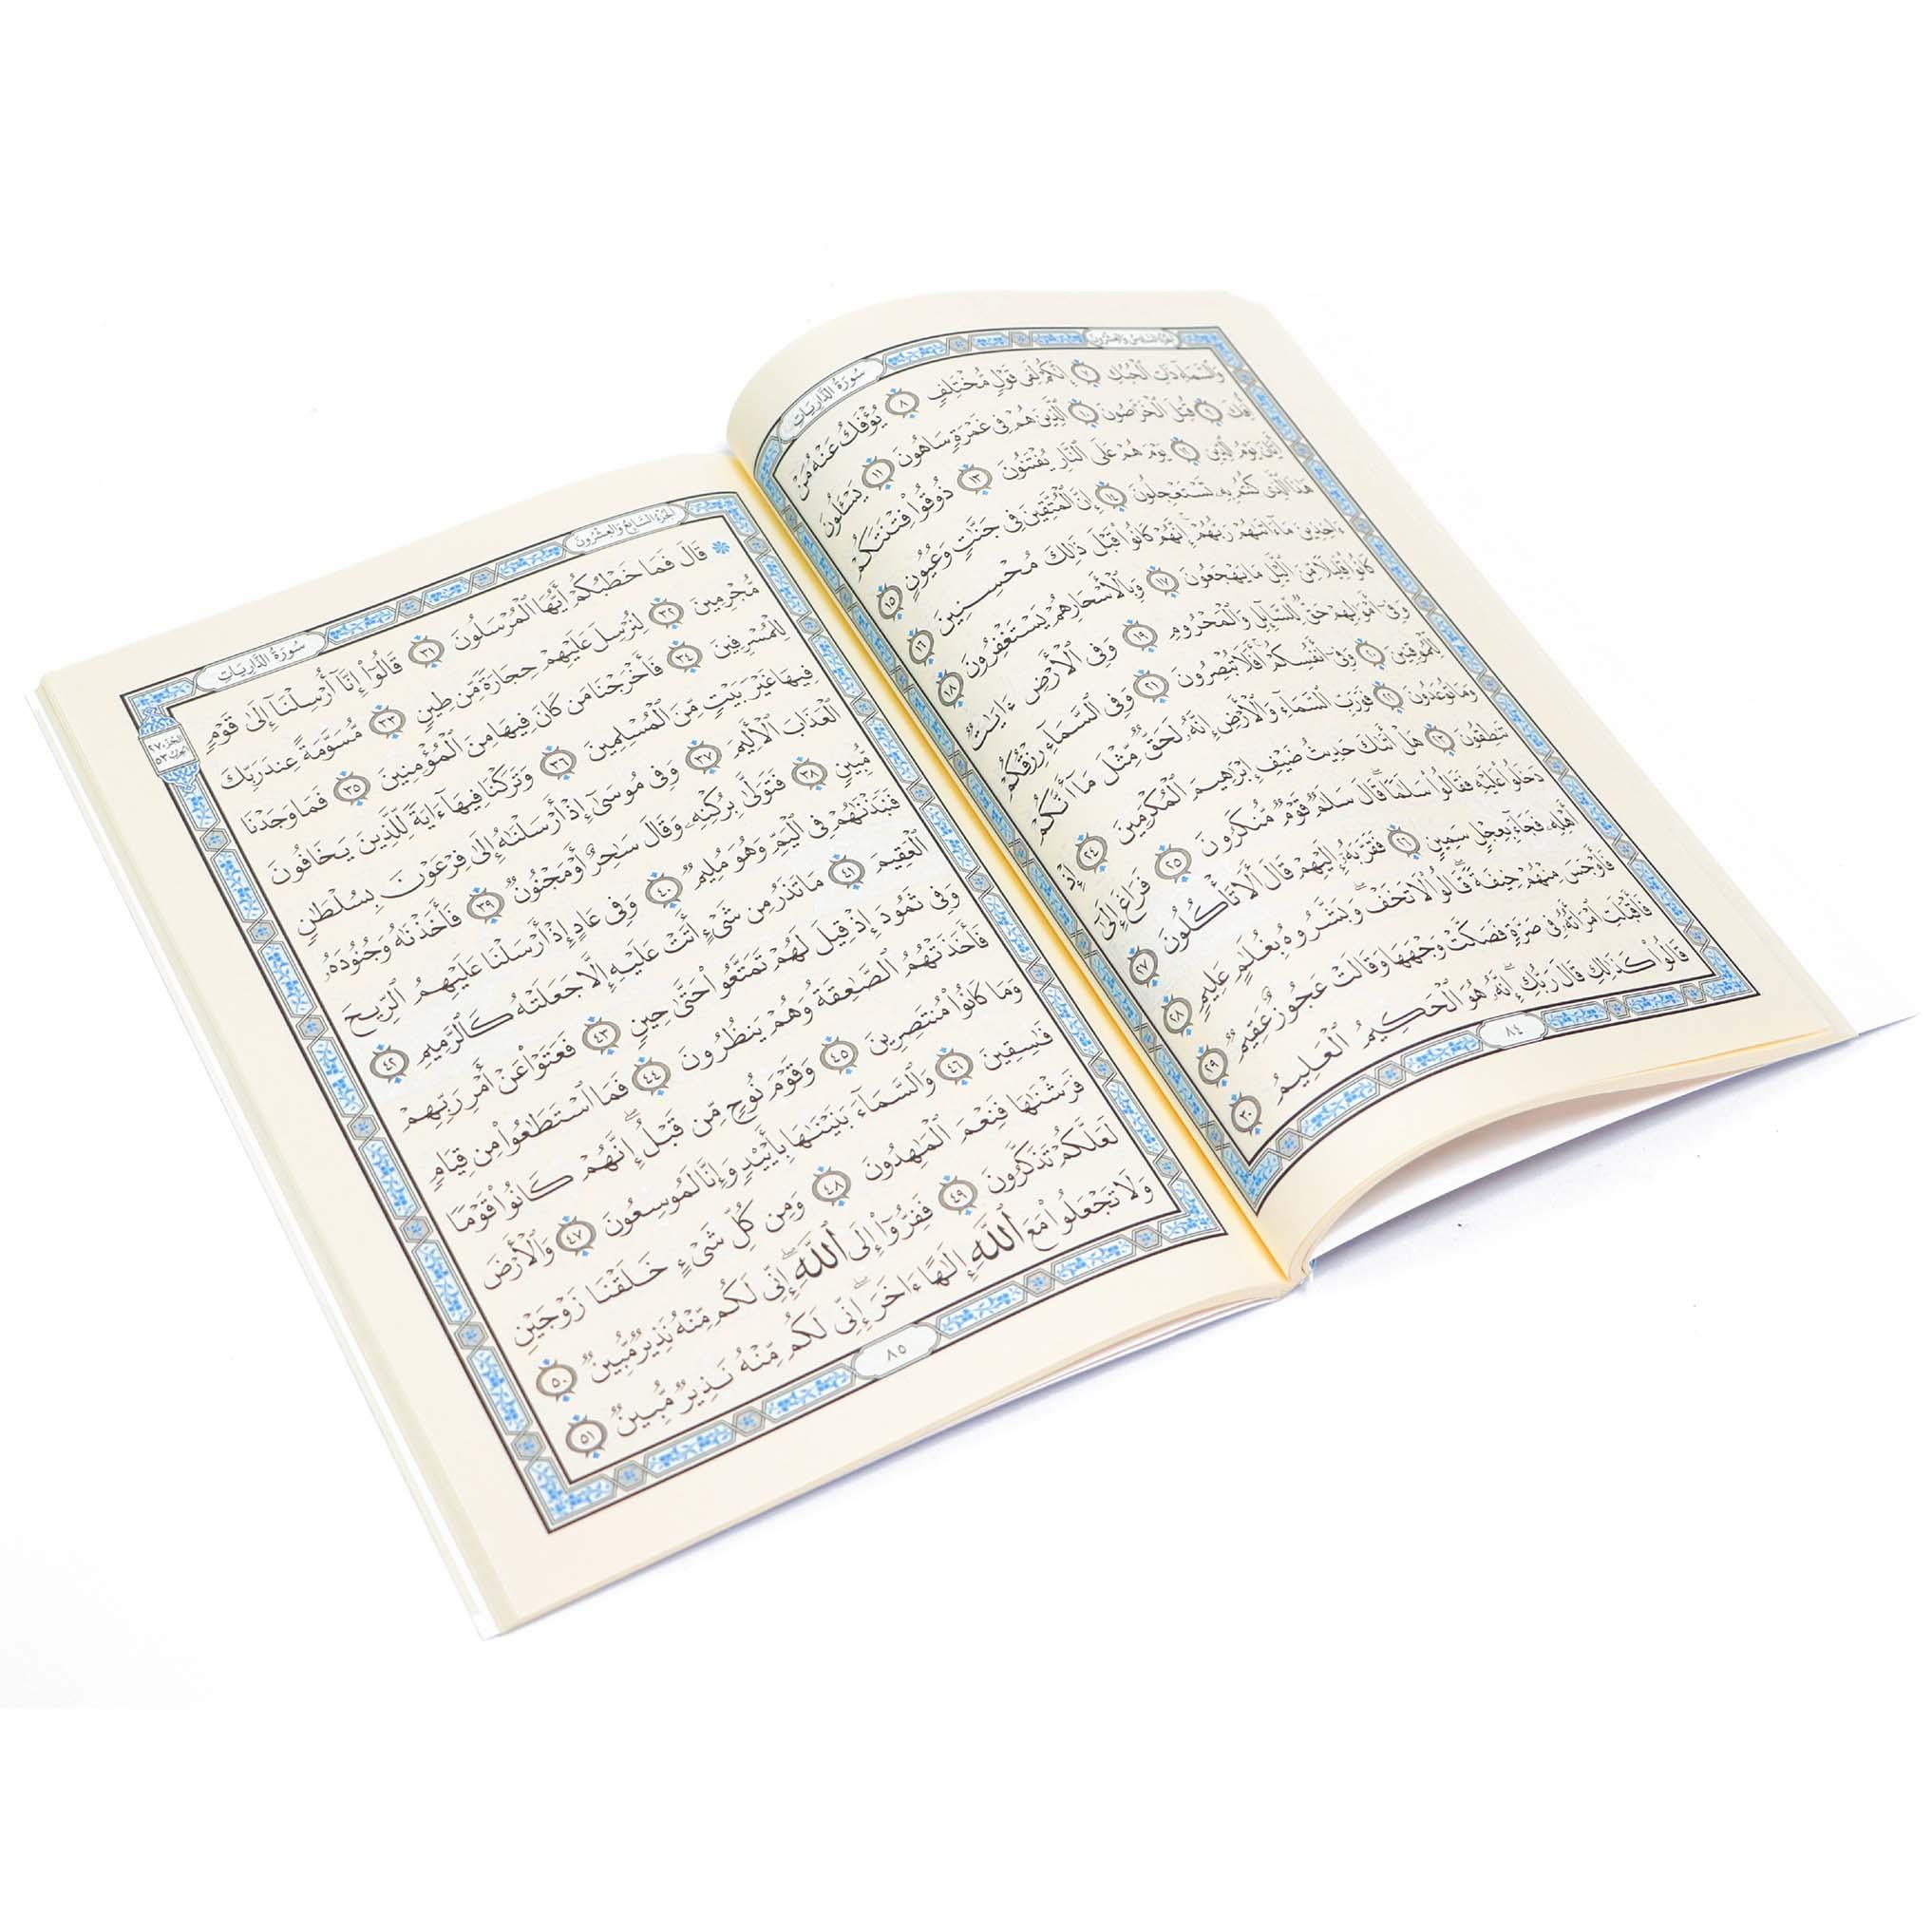 الجزء السادس والعشرون
سورة الذاريات
وَٱلسَّمَآءِ ذَاتِ ٱلْحُبُكِ ٧ إِنَّكُمْ لَفِى قَوْلٍ مُّخْتَلِفٍ ٨ يُؤْفَكُ عَنْهُ مَنْ
أُفِكَ ٩ قُتِلَ ٱلْخَرَّٰصُونَ ١٠ ٱلَّذِينَ هُمْ فِى غَمْرَةٍ سَاهُونَ ١١ يَسْـَٔلُونَ
أَيَّانَ يَوْمُ ٱلدِّينِ ١٢ يَوْمَ هُمْ عَلَى ٱلنَّارِ يُفْتَنُونَ ١٣ ذُوقُوا۟ فِتْنَتَكُمْ
هَٰذَا ٱلَّذِى كُنتُم بِهِۦ تَسْتَعْجِلُونَ ١٤ إِنَّ ٱلْمُتَّقِينَ فِى جَنَّٰتٍ وَعُيُونٍ ١٥
ءَاخِذِينَ مَآ ءَاتَىٰهُمْ رَبُّهُمْ ۚ إِنَّهُمْ كَانُوا۟ قَبْلَ ذَٰلِكَ مُحْسِنِينَ ١٦
كَانُوا۟ قَلِيلًا مِّنَ ٱلَّيْلِ مَا يَهْجَعُونَ ١٧ وَبِٱلْأَسْحَارِ هُمْ يَسْتَغْفِرُونَ ١٨
وَفِىٓ أَمْوَٰلِهِمْ حَقٌّ لِّلسَّآئِلِ وَٱلْمَحْرُومِ ١٩ وَفِى ٱلْأَرْضِ ءَايَٰتٌ
لِّلْمُوقِنِينَ ٢٠ وَفِىٓ أَنفُسِكُمْ ۚ أَفَلَا تُبْصِرُونَ ٢١ وَفِى ٱلسَّمَآءِ رِزْقُكُمْ
وَمَا تُوعَدُونَ ٢٢ فَوَرَبِّ ٱلسَّمَآءِ وَٱلْأَرْضِ إِنَّهُۥ لَحَقٌّ مِّثْلَ مَآ أَنَّكُمْ
تَنطِقُونَ ٢٣ هَلْ أَتَىٰكَ حَدِيثُ ضَيْفِ إِبْرَٰهِيمَ ٱلْمُكْرَمِينَ ٢٤ إِذْ
دَخَلُوا۟ عَلَيْهِ فَقَالُوا۟ سَلَٰمًا ۖ قَالَ سَلَٰمٌ قَوْمٌ مُّنكَرُونَ ٢٥ فَرَاغَ إِلَىٰٓ
أَهْلِهِۦ فَجَآءَ بِعِجْلٍ سَمِينٍ ٢٦ فَقَرَّبَهُۥٓ إِلَيْهِمْ قَالَ أَلَا تَأْكُلُونَ ٢٧
فَأَوْجَسَ مِنْهُمْ خِيفَةً ۖ قَالُوا۟ لَا تَخَفْ ۖ وَبَشَّرُوهُ بِغُلَٰمٍ عَلِيمٍ ٢٨
فَأَقْبَلَتِ ٱمْرَأَتُهُۥ فِى صَرَّةٍ فَصَكَّتْ وَجْهَهَا وَقَالَتْ عَجُوزٌ عَقِيمٌ ٢٩
قَالُوا۟ كَذَٰلِكِ قَالَ رَبُّكِ ۖ إِنَّهُۥ هُوَ ٱلْحَكِيمُ ٱلْعَلِيمُ ٣٠
٨٤
الجزء السابع والعشرون
سورة الذاريات
الجزء ٢٧
الحزب ٥٣
۞ قَالَ فَمَا خَطْبُكُمْ أَيُّهَا ٱلْمُرْسَلُونَ ٣١ قَالُوٓا۟ إِنَّآ أُرْسِلْنَآ إِلَىٰ قَوْمٍ
مُّجْرِمِينَ ٣٢ لِنُرْسِلَ عَلَيْهِمْ حِجَارَةً مِّن طِينٍ ٣٣ مُّسَوَّمَةً عِندَ رَبِّكَ
لِلْمُسْرِفِينَ ٣٤ فَأَخْرَجْنَا مَن كَانَ فِيهَا مِنَ ٱلْمُؤْمِنِينَ ٣٥ فَمَا وَجَدْنَا
فِيهَا غَيْرَ بَيْتٍ مِّنَ ٱلْمُسْلِمِينَ ٣٦ وَتَرَكْنَا فِيهَآ ءَايَةً لِّلَّذِينَ يَخَافُونَ
ٱلْعَذَابَ ٱلْأَلِيمَ ٣٧ وَفِى مُوسَىٰٓ إِذْ أَرْسَلْنَٰهُ إِلَىٰ فِرْعَوْنَ بِسُلْطَٰنٍ
مُّبِينٍ ٣٨ فَتَوَلَّىٰ بِرُكْنِهِۦ وَقَالَ سَٰحِرٌ أَوْ مَجْنُونٌ ٣٩ فَأَخَذْنَٰهُ وَجُنُودَهُۥ
فَنَبَذْنَٰهُمْ فِى ٱلْيَمِّ وَهُوَ مُلِيمٌ ٤٠ وَفِى عَادٍ إِذْ أَرْسَلْنَا عَلَيْهِمُ ٱلرِّيحَ
ٱلْعَقِيمَ ٤١ مَا تَذَرُ مِن شَىْءٍ أَتَتْ عَلَيْهِ إِلَّا جَعَلَتْهُ كَٱلرَّمِيمِ ٤٢
وَفِى ثَمُودَ إِذْ قِيلَ لَهُمْ تَمَتَّعُوا۟ حَتَّىٰ حِينٍ ٤٣ فَعَتَوْا۟ عَنْ أَمْرِ رَبِّهِمْ
فَأَخَذَتْهُمُ ٱلصَّٰعِقَةُ وَهُمْ يَنظُرُونَ ٤٤ فَمَا ٱسْتَطَٰعُوا۟ مِن قِيَامٍ
وَمَا كَانُوا۟ مُنتَصِرِينَ ٤٥ وَقَوْمَ نُوحٍ مِّن قَبْلُ ۖ إِنَّهُمْ كَانُوا۟ قَوْمًا
فَٰسِقِينَ ٤٦ وَٱلسَّمَآءَ بَنَيْنَٰهَا بِأَيْي۟دٍ وَإِنَّا لَمُوسِعُونَ ٤٧ وَٱلْأَرْضَ
فَرَشْنَٰهَا فَنِعْمَ ٱلْمَٰهِدُونَ ٤٨ وَمِن كُلِّ شَىْءٍ خَلَقْنَا زَوْجَيْنِ
لَعَلَّكُمْ تَذَكَّرُونَ ٤٩ فَفِرُّوٓا۟ إِلَى ٱللَّهِ ۖ إِنِّى لَكُم مِّنْهُ نَذِيرٌ مُّبِينٌ ٥٠
وَلَا تَجْعَلُوا۟ مَعَ ٱللَّهِ إِلَٰهًا ءَاخَرَ ۖ إِنِّى لَكُم مِّنْهُ نَذِيرٌ مُّبِينٌ ٥١
٨٥